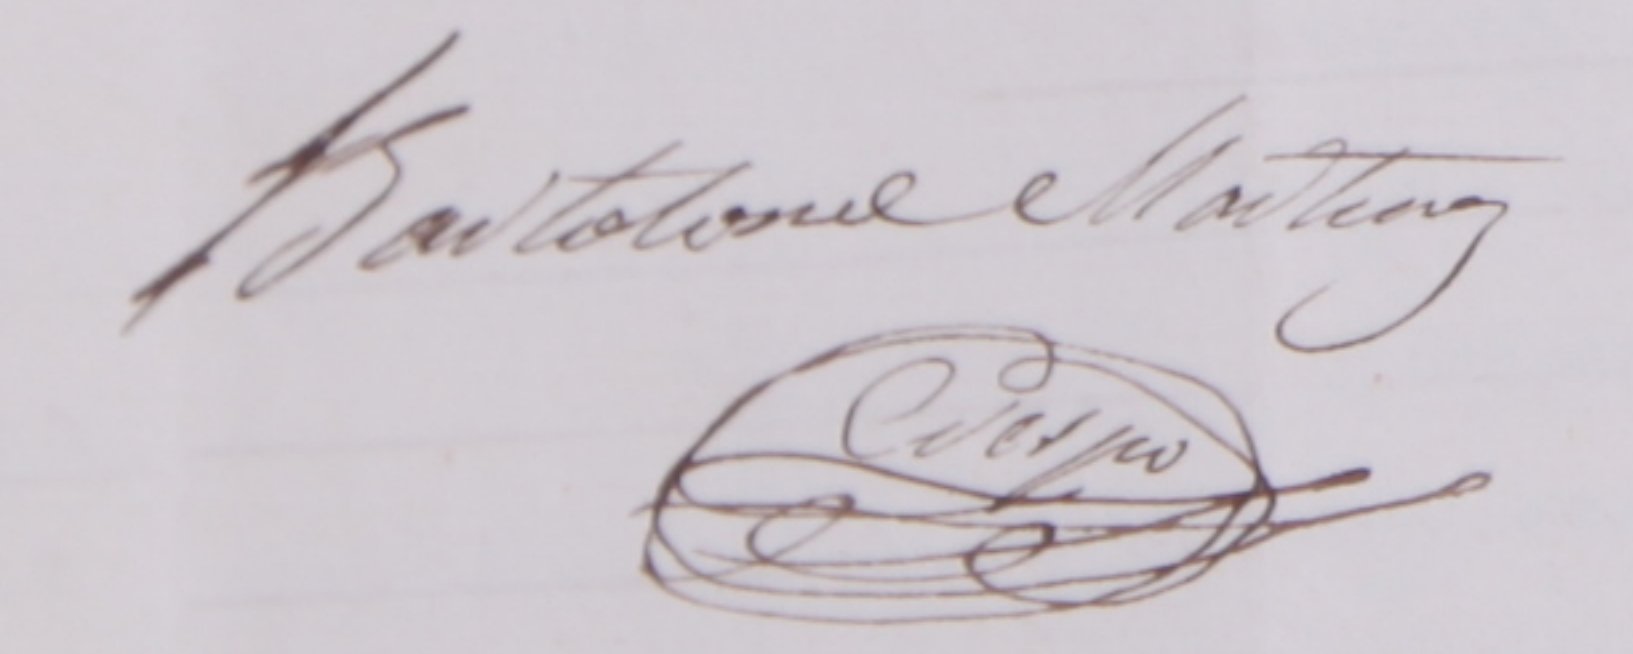 Bartolome Martinez
Crespo